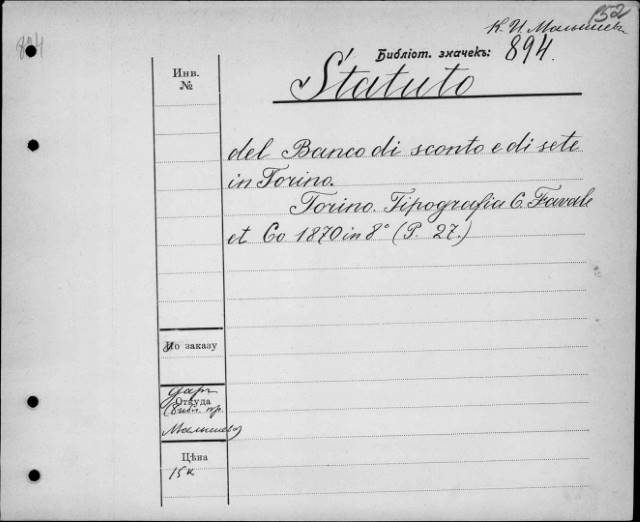 152
К. И. Малышев
894
Библіот. значекъ: 894.
Инв.
№
Statuto
del Banco di sconto e di sete
in Torino.
Torino. Tipografia C. Favale
et Co 1870 in 8° (P. 27.)
По заказу
Откуда
даръ
(Библ. пр.
Малышева)
Цѣна
15 к